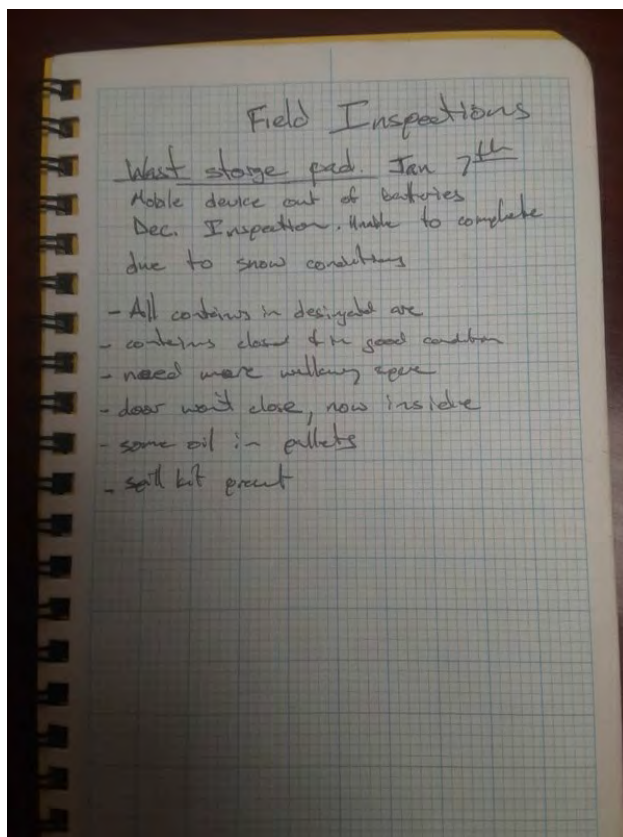 Field Inspections
Wast storge pad. Jan 7th
Mobile device out of batteries
Dec. Inspection. Unable to complete
due to snow conditions
- All contains in desigated are
- contains closed & in good condition
- need more walking space
- door won't close, now inside
- some oil in pallets
- spill kit present